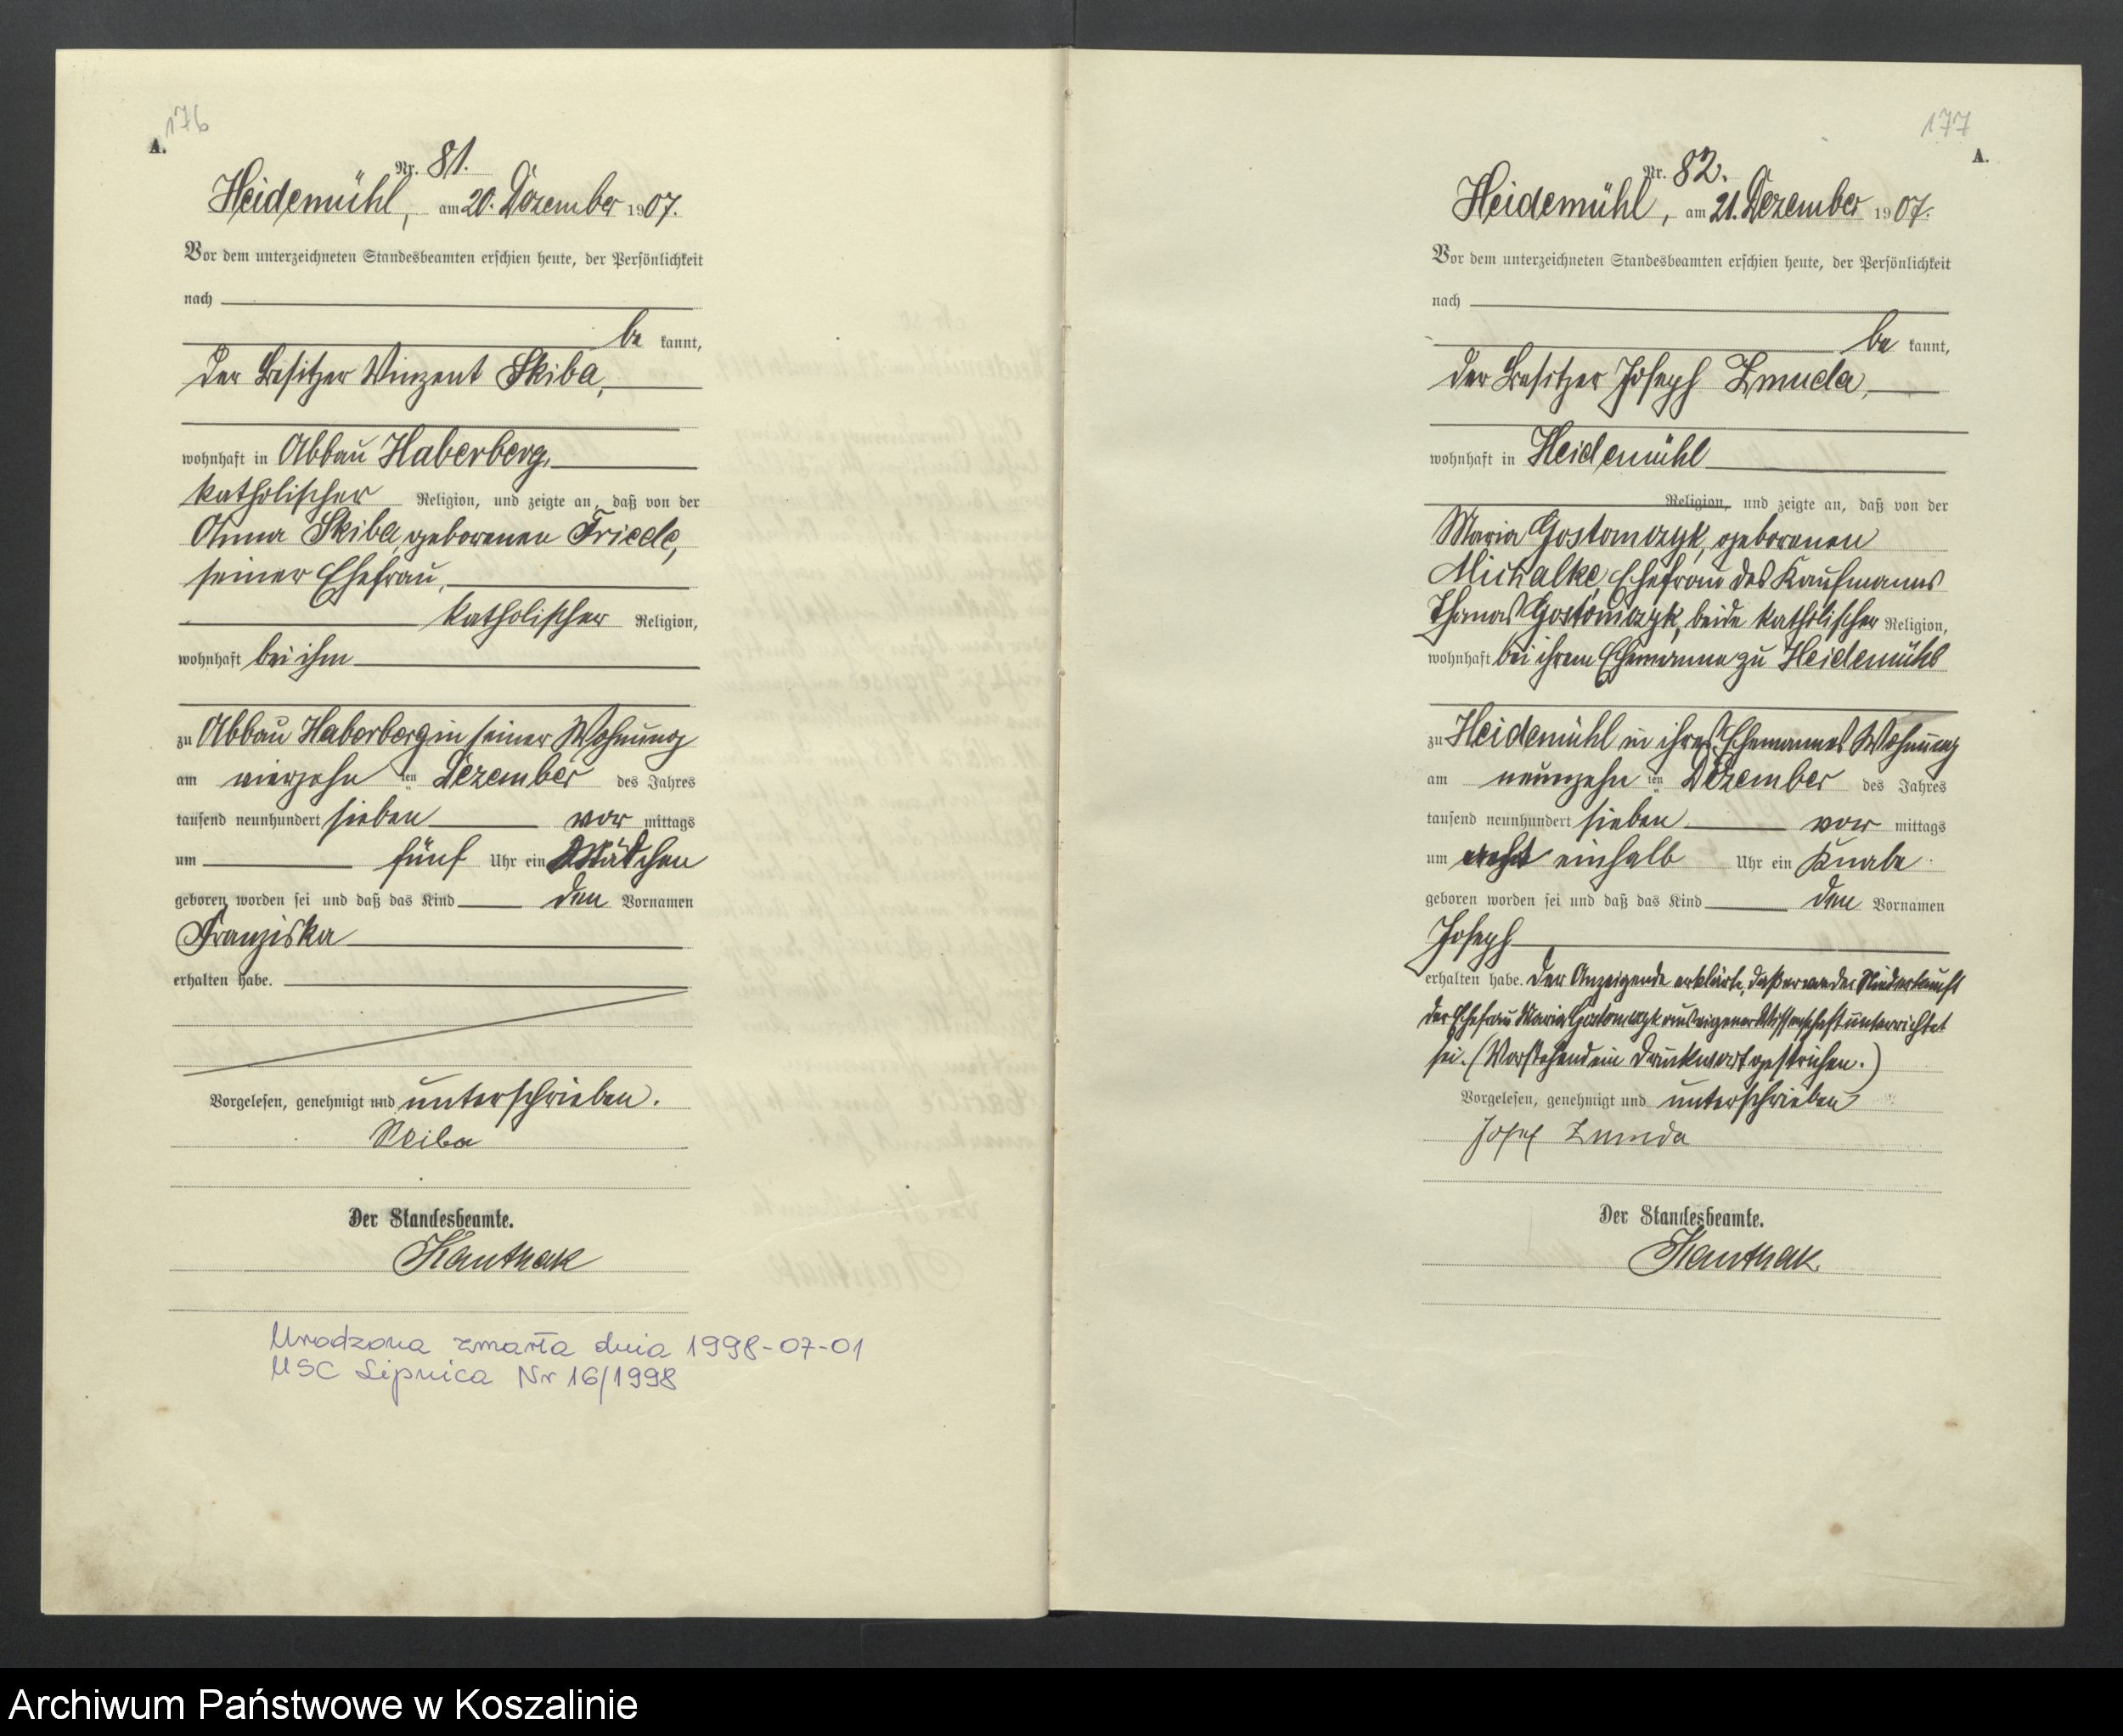 176
A.
Nr. 81.
Heidemühl, am 20. Dezember 1907.
Vor dem unterzeichneten Standesbeamten erschien heute, der Persönlichkeit
nach
be kannt,
der Besitzer Winzent Skiba,
wohnhaft in Abbau Haberberg,
katholischer Religion, und zeigte an, daß von der
Anna Skiba, geborenen Friede,
seiner Ehefrau,
katholischer Religion,
wohnhaft bei ihm
zu Abbau Haberberg in seiner Wohnung
am vierzehn ten Dezember des Jahres
tausend neunhundert sieben vor mittags
um fünf Uhr ein Mädchen
geboren worden sei und daß das Kind den Vornamen
Franziska
erhalten habe.
Vorgelesen, genehmigt und unterschrieben.
Skiba
Der Standesbeamte.
Kanthak
Urodzona zmarła dnia 1998-07-01
USC Lipnica Nr 16/1998
177
A.
Nr. 82.
Heidemühl, am 21. Dezember 1907.
Vor dem unterzeichneten Standesbeamten erschien heute, der Persönlichkeit
nach
be kannt,
der Besitzer Joseph Zmuda,
wohnhaft in Heidemühl
Religion, und zeigte an, daß von der
Maria Gostomczyk, geborenen
Michalke, Ehefrau des Kaufmanns
Thomas Gostomczyk, beide katholischer Religion,
wohnhaft bei ihrem Ehemanne zu Heidemühl
zu Heidemühl in ihres Ehemannes Wohnung
am neunzehn ten Dezember des Jahres
tausend neunhundert sieben vor mittags
um einhalb Uhr ein Knabe
geboren worden sei und daß das Kind den Vornamen
Joseph
erhalten habe. Der Anzeigende erklärte, daß er von der Niederkunft
der Ehefrau Maria Gostomczyk aus eigener Wissenschaft unterrichtet
sei. (Vorstehend ein Druckwort gestrichen.)
Vorgelesen, genehmigt und unterschrieben
Josef Zmuda
Der Standesbeamte.
Kanthak.
Archiwum Państwowe w Koszalinie